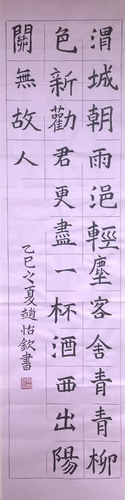 渭城朝雨浥輕塵客舍青青柳
色新勸君更盡一杯酒西出陽
關無故人
乙巳之夏趙怡欽書